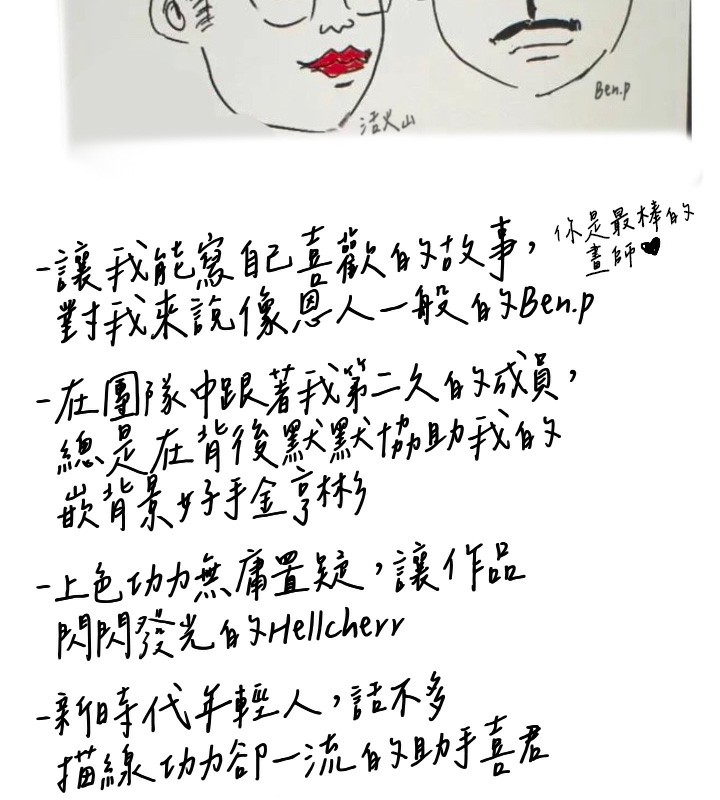 活火山
Ben.P
-讓我能寫自己喜歡的故事,
對我來說像恩人一般的Ben.p
你是最棒的
畫師♥
-在團隊中跟著我第二久的成員,
總是在背後默默協助我的
嵌背景好手金亨彬
-上色功力無庸置疑,讓作品
閃閃發光的Hellcherr
-新時代年輕人,話不多
描線功力卻一流的助手喜君